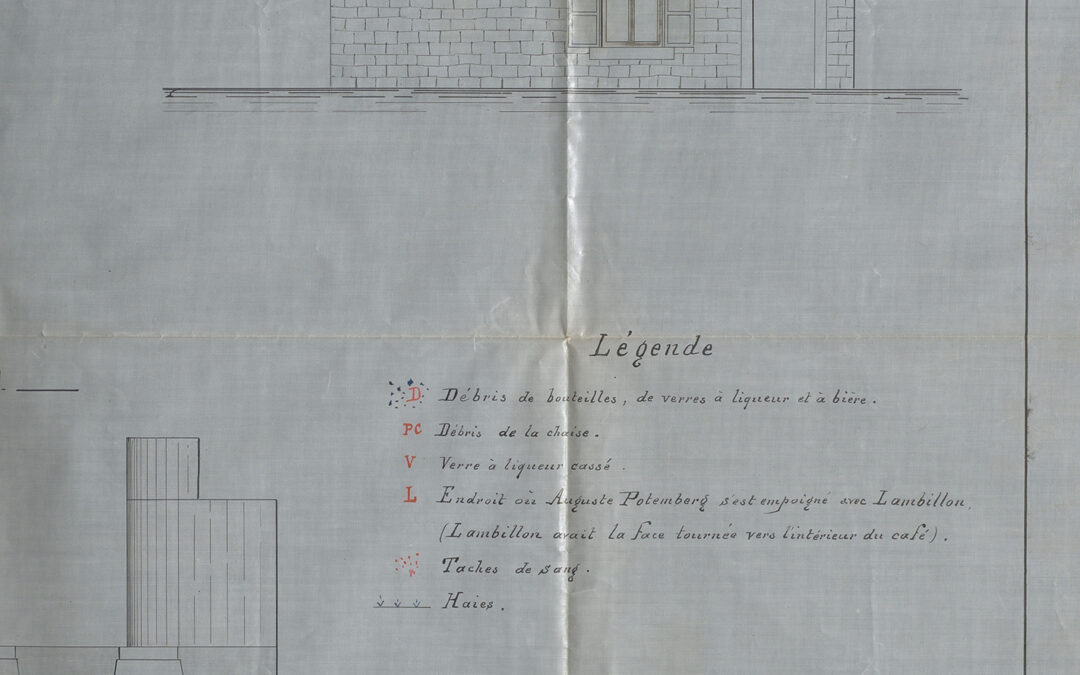 Légende
D Débris de bouteilles, de verres à liqueur et à bière.
PC Débris de la chaise.
V Verre à liqueur cassé.
L Endroit où Auguste Potemberg s'est empoigné avec Lambillon,
(Lambillon avait la face tournée vers l'intérieur du café).
Taches de sang.
Haies.